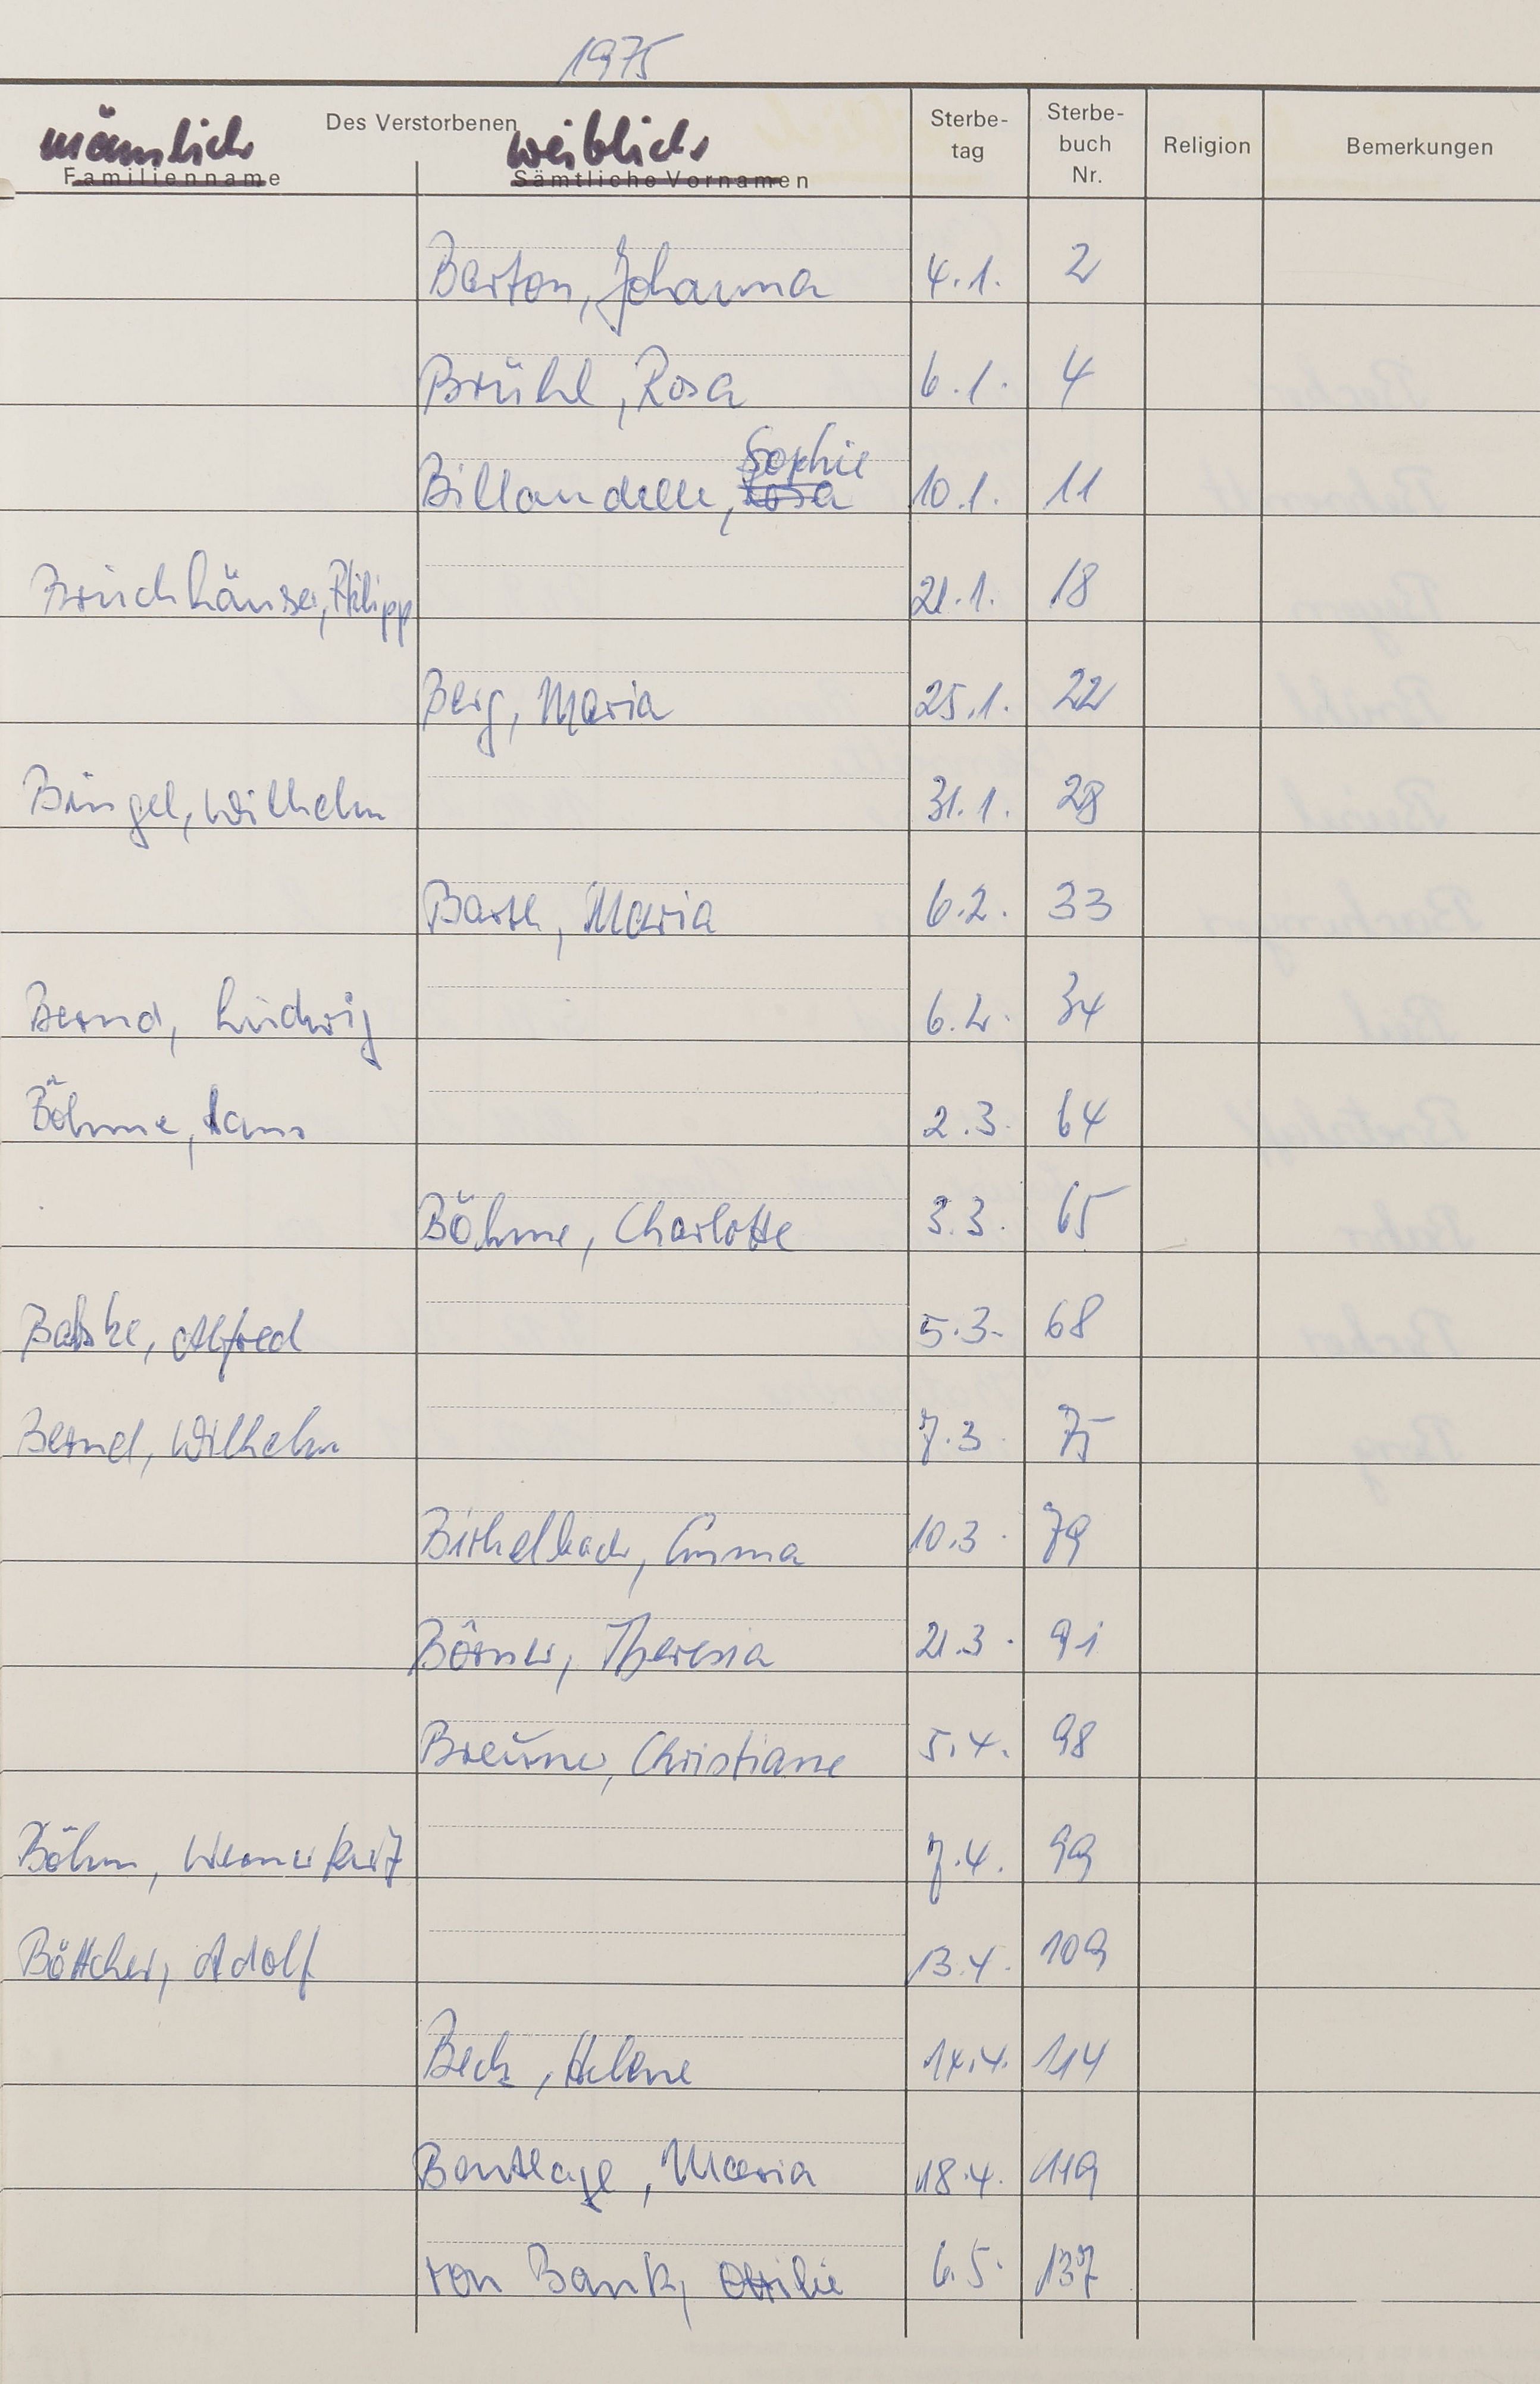 1975
männlich Des Verstorbenen weiblich Sterbe- Sterbe-
tag buch Religion Bemerkungen
Familienname Sämtliche Vornamen Nr.
Barton, Johanna 4.1. 2
Brühl, Rosa 6.1. 4
Sophie
Billandelle, Rosa 10.1. 11
Bruchhäuser, Philipp 21.1. 18
Berg, Maria 25.1. 22
Bingel, Wilhelm 31.1. 28
Barth, Maria 6.2. 33
Bernd, Ludwig 6.2. 34
Böhme, Hans 2.3. 64
Böhme, Charlotte 3.3. 65
Alfred 5.3. 68
Bernd, Wilhelm 7.3 75
Birkelbach, Emma 10.3. 79
Börner, Theresia 21.3. 91
Breuner, Christiane 5.4. 98
Böhm, Werner Kurt 7.4. 99
Böttcher, Adolf 13.4. 109
Beck, Helene 14.4. 114
Bentlage, Maria 18.4. 119
von Bank, Ottilie 6.5. 137